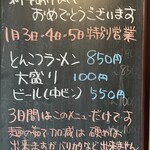 おめでとうございます
1月3日・4日・5日特別営業
とんこつラーメン 850円
大盛り 100円
ビール(中ビン) 550円
3日間はこのメニューだけです
麺の茹で加減は硬めは
出来ますがバリカタなど出来ません